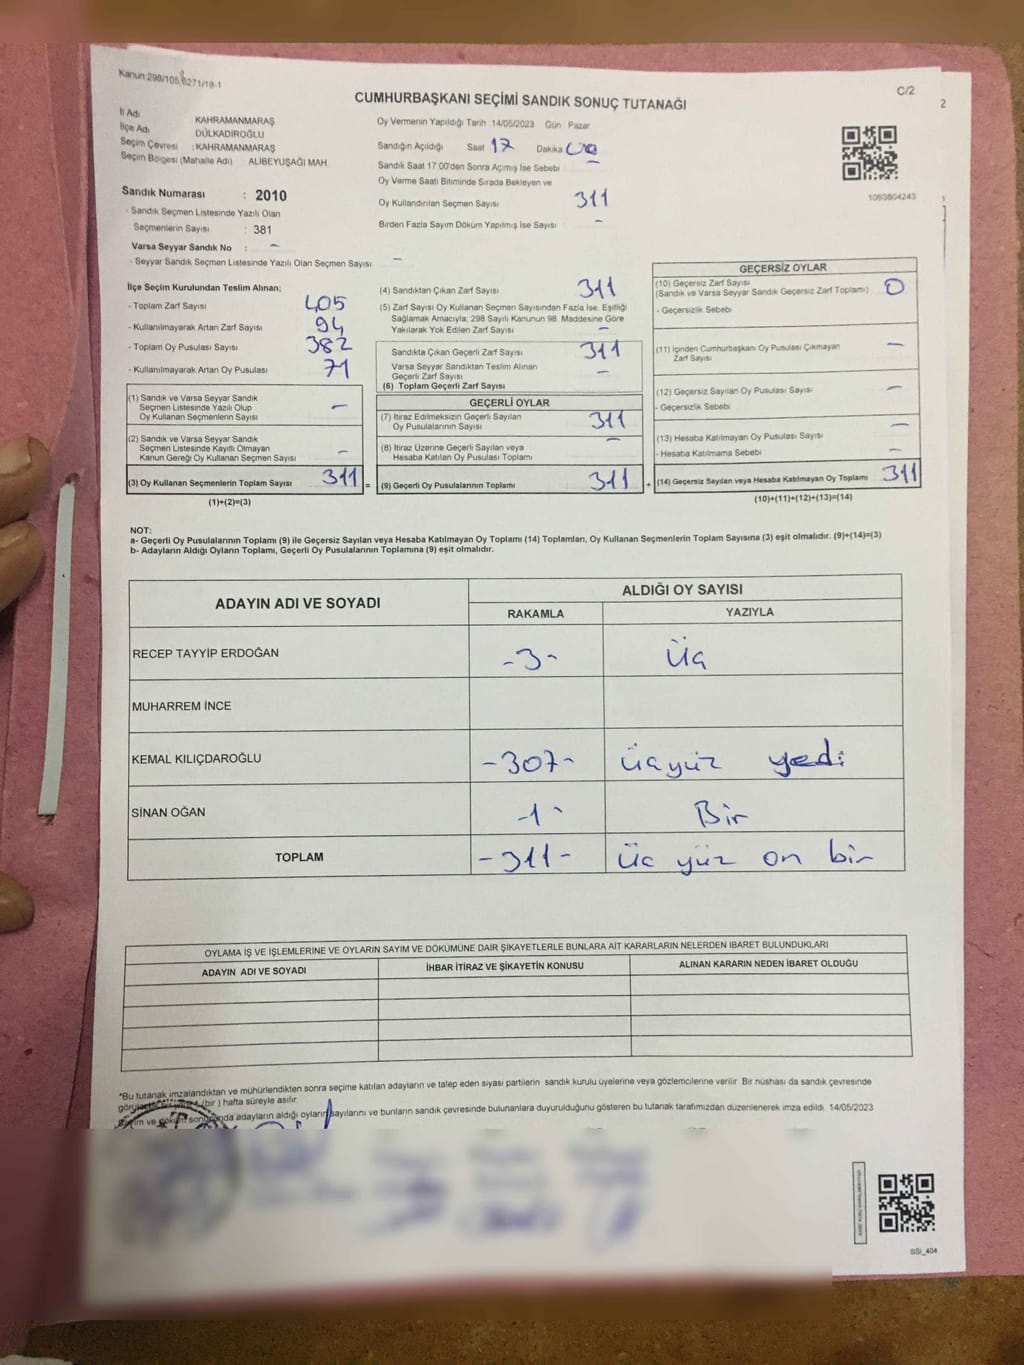 Kanun:298/105,6271/18-1
C/2
2
CUMHURBAŞKANI SEÇİMİ SANDIK SONUÇ TUTANAĞI
İl Adı KAHRAMANMARAŞ
İlçe Adı DULKADİROĞLU
Seçim Çevresi : KAHRAMANMARAŞ
Seçim Bölgesi (Mahalle Adı) ALİBEYUŞAĞI MAH.
Sandık Numarası : 2010
- Sandık Seçmen Listesinde Yazılı Olan
Seçmenlerin Sayısı : 381
Varsa Seyyar Sandık No : -
- Seyyar Sandık Seçmen Listesinde Yazılı Olan Seçmen Sayısı: -
Oy Vermenin Yapıldığı Tarih : 14/05/2023 Gün : Pazar
Sandığın Açıldığı Saat 17 Dakika 00
Sandık Saat 17:00'den Sonra Açımış İse Sebebi -
Oy Verme Saati Bitiminde Sırada Bekleyen ve
Oy Kullandırılan Seçmen Sayısı 311
Birden Fazla Sayım Döküm Yapılmış İse Sayısı -
1093804243
İlçe Seçim Kurulundan Teslim Alınan;
- Toplam Zarf Sayısı 405
- Kullanılmayarak Artan Zarf Sayısı 94
- Toplam Oy Pusulası Sayısı 382
- Kullanılmayarak Artan Oy Pusulası 71
(1) Sandık ve Varsa Seyyar Sandık
Seçmen Listesinde Yazılı Olup
Oy Kullanan Seçmenlerin Sayısı -
(2) Sandık ve Varsa Seyyar Sandık
Seçmen Listesinde Kayıtlı Olmayan
Kanun Gereği Oy Kullanan Seçmen Sayısı -
(3) Oy Kullanan Seçmenlerin Toplam Sayısı 311 =
(1)+(2)=(3)
(4) Sandıktan Çıkan Zarf Sayısı 311
(5) Zarf Sayısı Oy Kullanan Seçmen Sayısından Fazla İse, Eşitliği
Sağlamak Amacıyla, 298 Sayılı Kanunun 98. Maddesine Göre
Yakılarak Yok Edilen Zarf Sayısı -
Sandıkta Çıkan Geçerli Zarf Sayısı 311
Varsa Seyyar Sandıktan Teslim Alınan
Geçerli Zarf Sayısı -
(6) Toplam Geçerli Zarf Sayısı
GEÇERLİ OYLAR
(7) İtiraz Edilmeksizin Geçerli Sayılan
Oy Pusulalarının Sayısı 311
(8) İtiraz Üzerine Geçerli Sayılan veya
Hesaba Katılan Oy Pusulası Toplamı -
(9) Geçerli Oy Pusulalarının Toplamı 311 +
GEÇERSİZ OYLAR
(10) Geçersiz Zarf Sayısı
(Sandık ve Varsa Seyyar Sandık Geçersiz Zarf Toplamı) 0
- Geçersizlik Sebebi
(11) İçinden Cumhurbaşkanı Oy Pusulası Çıkmayan
Zarf Sayısı -
(12) Geçersiz Sayılan Oy Pusulası Sayısı -
- Geçersizlik Sebebi
(13) Hesaba Katılmayan Oy Pusulası Sayısı -
- Hesaba Katılmama Sebebi -
(14) Geçersiz Sayılan veya Hesaba Katılmayan Oy Toplamı 311
(10)+(11)+(12)+(13)=(14)
NOT:
a- Geçerli Oy Pusulalarının Toplamı (9) ile Geçersiz Sayılan veya Hesaba Katılmayan Oy Toplamı (14) Toplamları, Oy Kullanan Seçmenlerin Toplam Sayısına (3) eşit olmalıdır. (9)+(14)=(3)
b- Adayların Aldığı Oyların Toplamı, Geçerli Oy Pusulalarının Toplamına (9) eşit olmalıdır.
ADAYIN ADI VE SOYADI
ALDIĞI OY SAYISI
RAKAMLA YAZIYLA
RECEP TAYYİP ERDOĞAN -3- Üç
MUHARREM İNCE
KEMAL KILIÇDAROĞLU -307- üçyüz yedi
SİNAN OĞAN -1- Bir
TOPLAM -311- üç yüz on bir
OYLAMA İŞ VE İŞLEMLERİNE VE OYLARIN SAYIM VE DÖKÜMÜNE DAİR ŞİKAYETLERLE BUNLARA AİT KARARLARIN NELERDEN İBARET BULUNDUKLARI
ADAYIN ADI VE SOYADI İHBAR İTİRAZ VE ŞİKAYETİN KONUSU ALINAN KARARIN NEDEN İBARET OLDUĞU
*Bu tutanak imzalandıktan ve mühürlendikten sonra seçime katılan adayların ve talep eden siyasi partilerin sandık kurulu üyelerine veya gözlemcilerine verilir. Bir nüshası da sandık çevresinde
(bir ) hafta süreyle asılır.
adayların aldığı oyların sayılarını ve bunların sandık çevresinde bulunanlara duyurulduğunu gösteren bu tutanak tarafımızdan düzenlenerek imza edildi. 14/05/2023
SSI_404